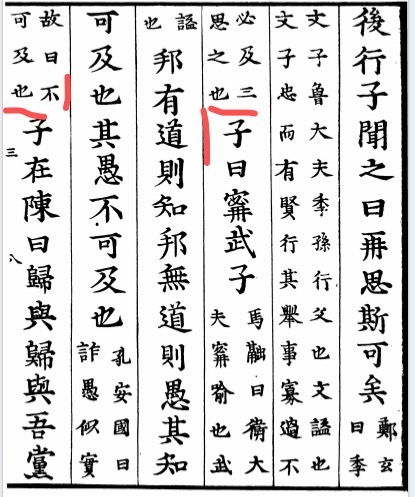 後行子聞之曰再思斯可矣鄭玄曰季
文子魯大夫季孫行父也文謚也
文子忠而有賢行其舉事寡過不
必及三思之也子曰甯武子馬融曰衛大夫甯喻也武
謚也邦有道則知邦無道則愚其知
可及也其愚不可及也孔安國曰詐愚似實
故曰不可及也子在陳曰歸與歸與吾黨
三 八